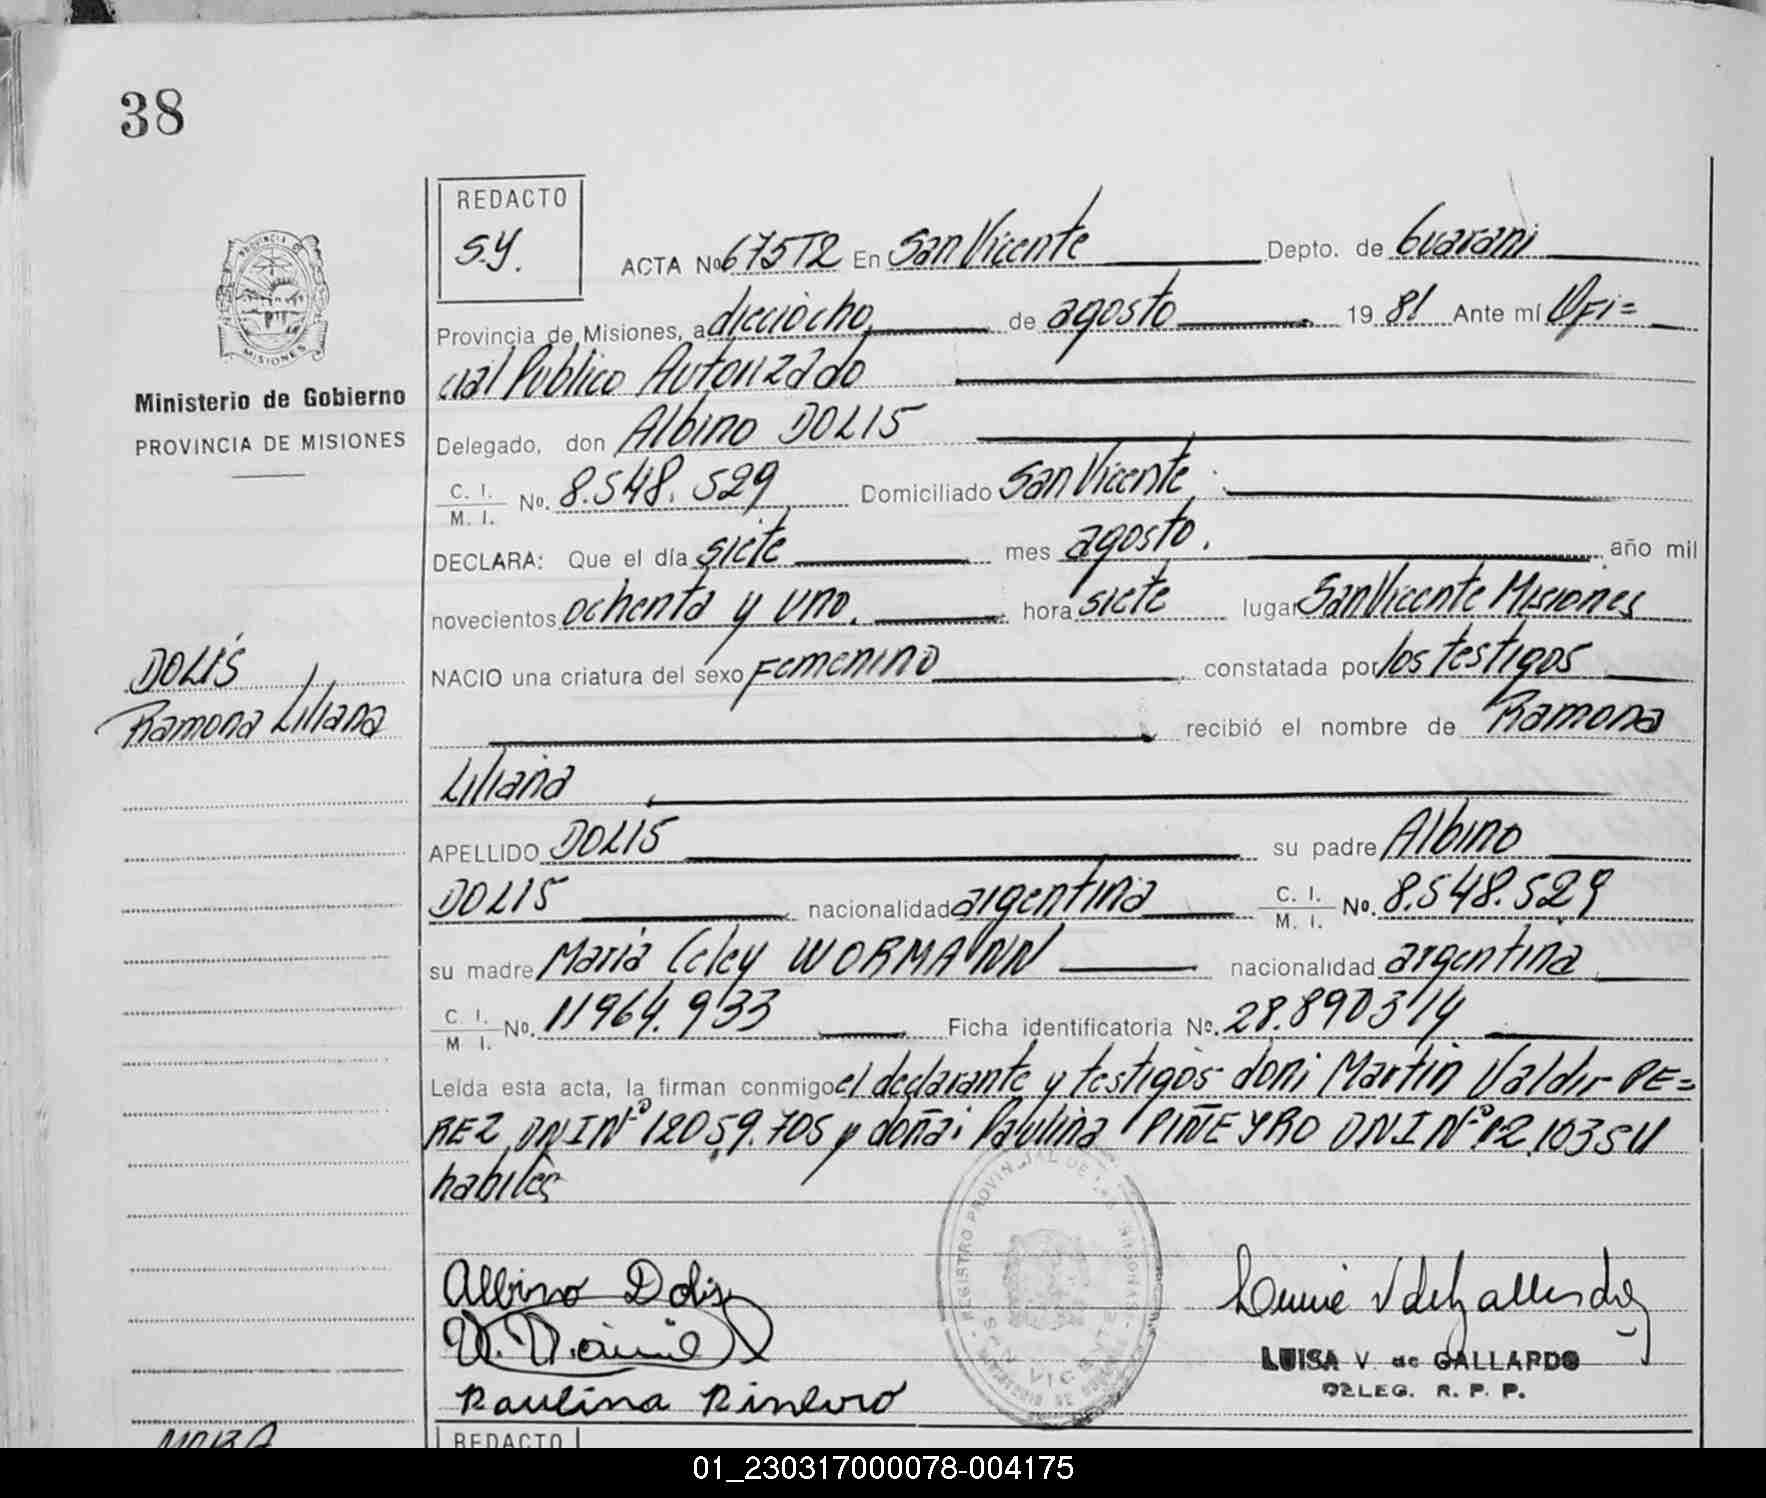 38
REDACTO
S.Y.
ACTA No 675T2 En San Vicente Depto. de Guaraní
Provincia de Misiones, a dieciocho de agosto 19 81 Ante mí Ofi=
cial Público Autorizado
Ministerio de Gobierno
PROVINCIA DE MISIONES
Delegado, don Albino DOLIS
C. I. / M. I. No. 8.548.529 Domiciliado San Vicente
DECLARA: Que el día siete mes agosto. año mil
novecientos ochenta y uno. hora siete lugar San Vicente Misiones
DOLIS
Ramona Liliana
NACIO una criatura del sexo Femenino constatada por los testigos
recibió el nombre de Ramona
Liliana
APELLIDO DOLIS su padre Albino
DOLIS nacionalidad argentina C. I. / M. I. No. 8.548.529
su madre María Celey WORMANN nacionalidad argentina
C. I. / M I. No. 11964.933 Ficha identificatoria No. 28.890314
Leída esta acta, la firman conmigo el declarante y testigos don: Martin Valdir PE=
REZ DNI Nº 12059.705 y doña: Paulina PIÑEYRO DNI Nº
habiles
REGISTRO PROVINCIAL DE LAS PERSONAS
SAN VICENTE
Albino Dolis
Paulina Pineyro
LUISA V. de GALLARDO
DELEG. R. P. P.
REDACTO
01_230317000078-004175